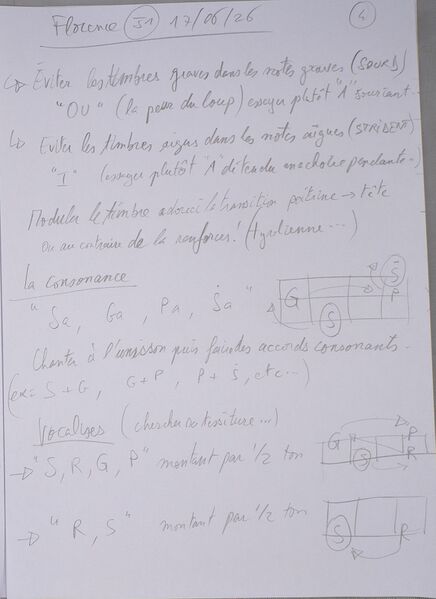 Florence J1 17/06/26 4
↳ Eviter les timbres graves dans les notes graves (SOURD)
"OU" (la peur du loup) essayer plutôt "A" souriant...
↳ Eviter les timbres aigus dans les notes aigues (STRIDENT)
"I" (essayer plutôt "A" détendu machoire pendante...)
Moduler le timbre adoucit la transition poitrine → tête
Ou au contraire de la renforcer! (tyrolienne...)
La consonance
"Sa, Ga, Pa, Ṡa"
G S P Ṡ
Chanter à l'unisson puis faire des accords consonants.
(ex= S+G, G+P, P+Ṡ, etc...)
Vocalises (chercher sa tessiture...)
→ "S, R, G, P" montant par 1/2 ton
G S P R
→ "R, S" montant par 1/2 ton
S R